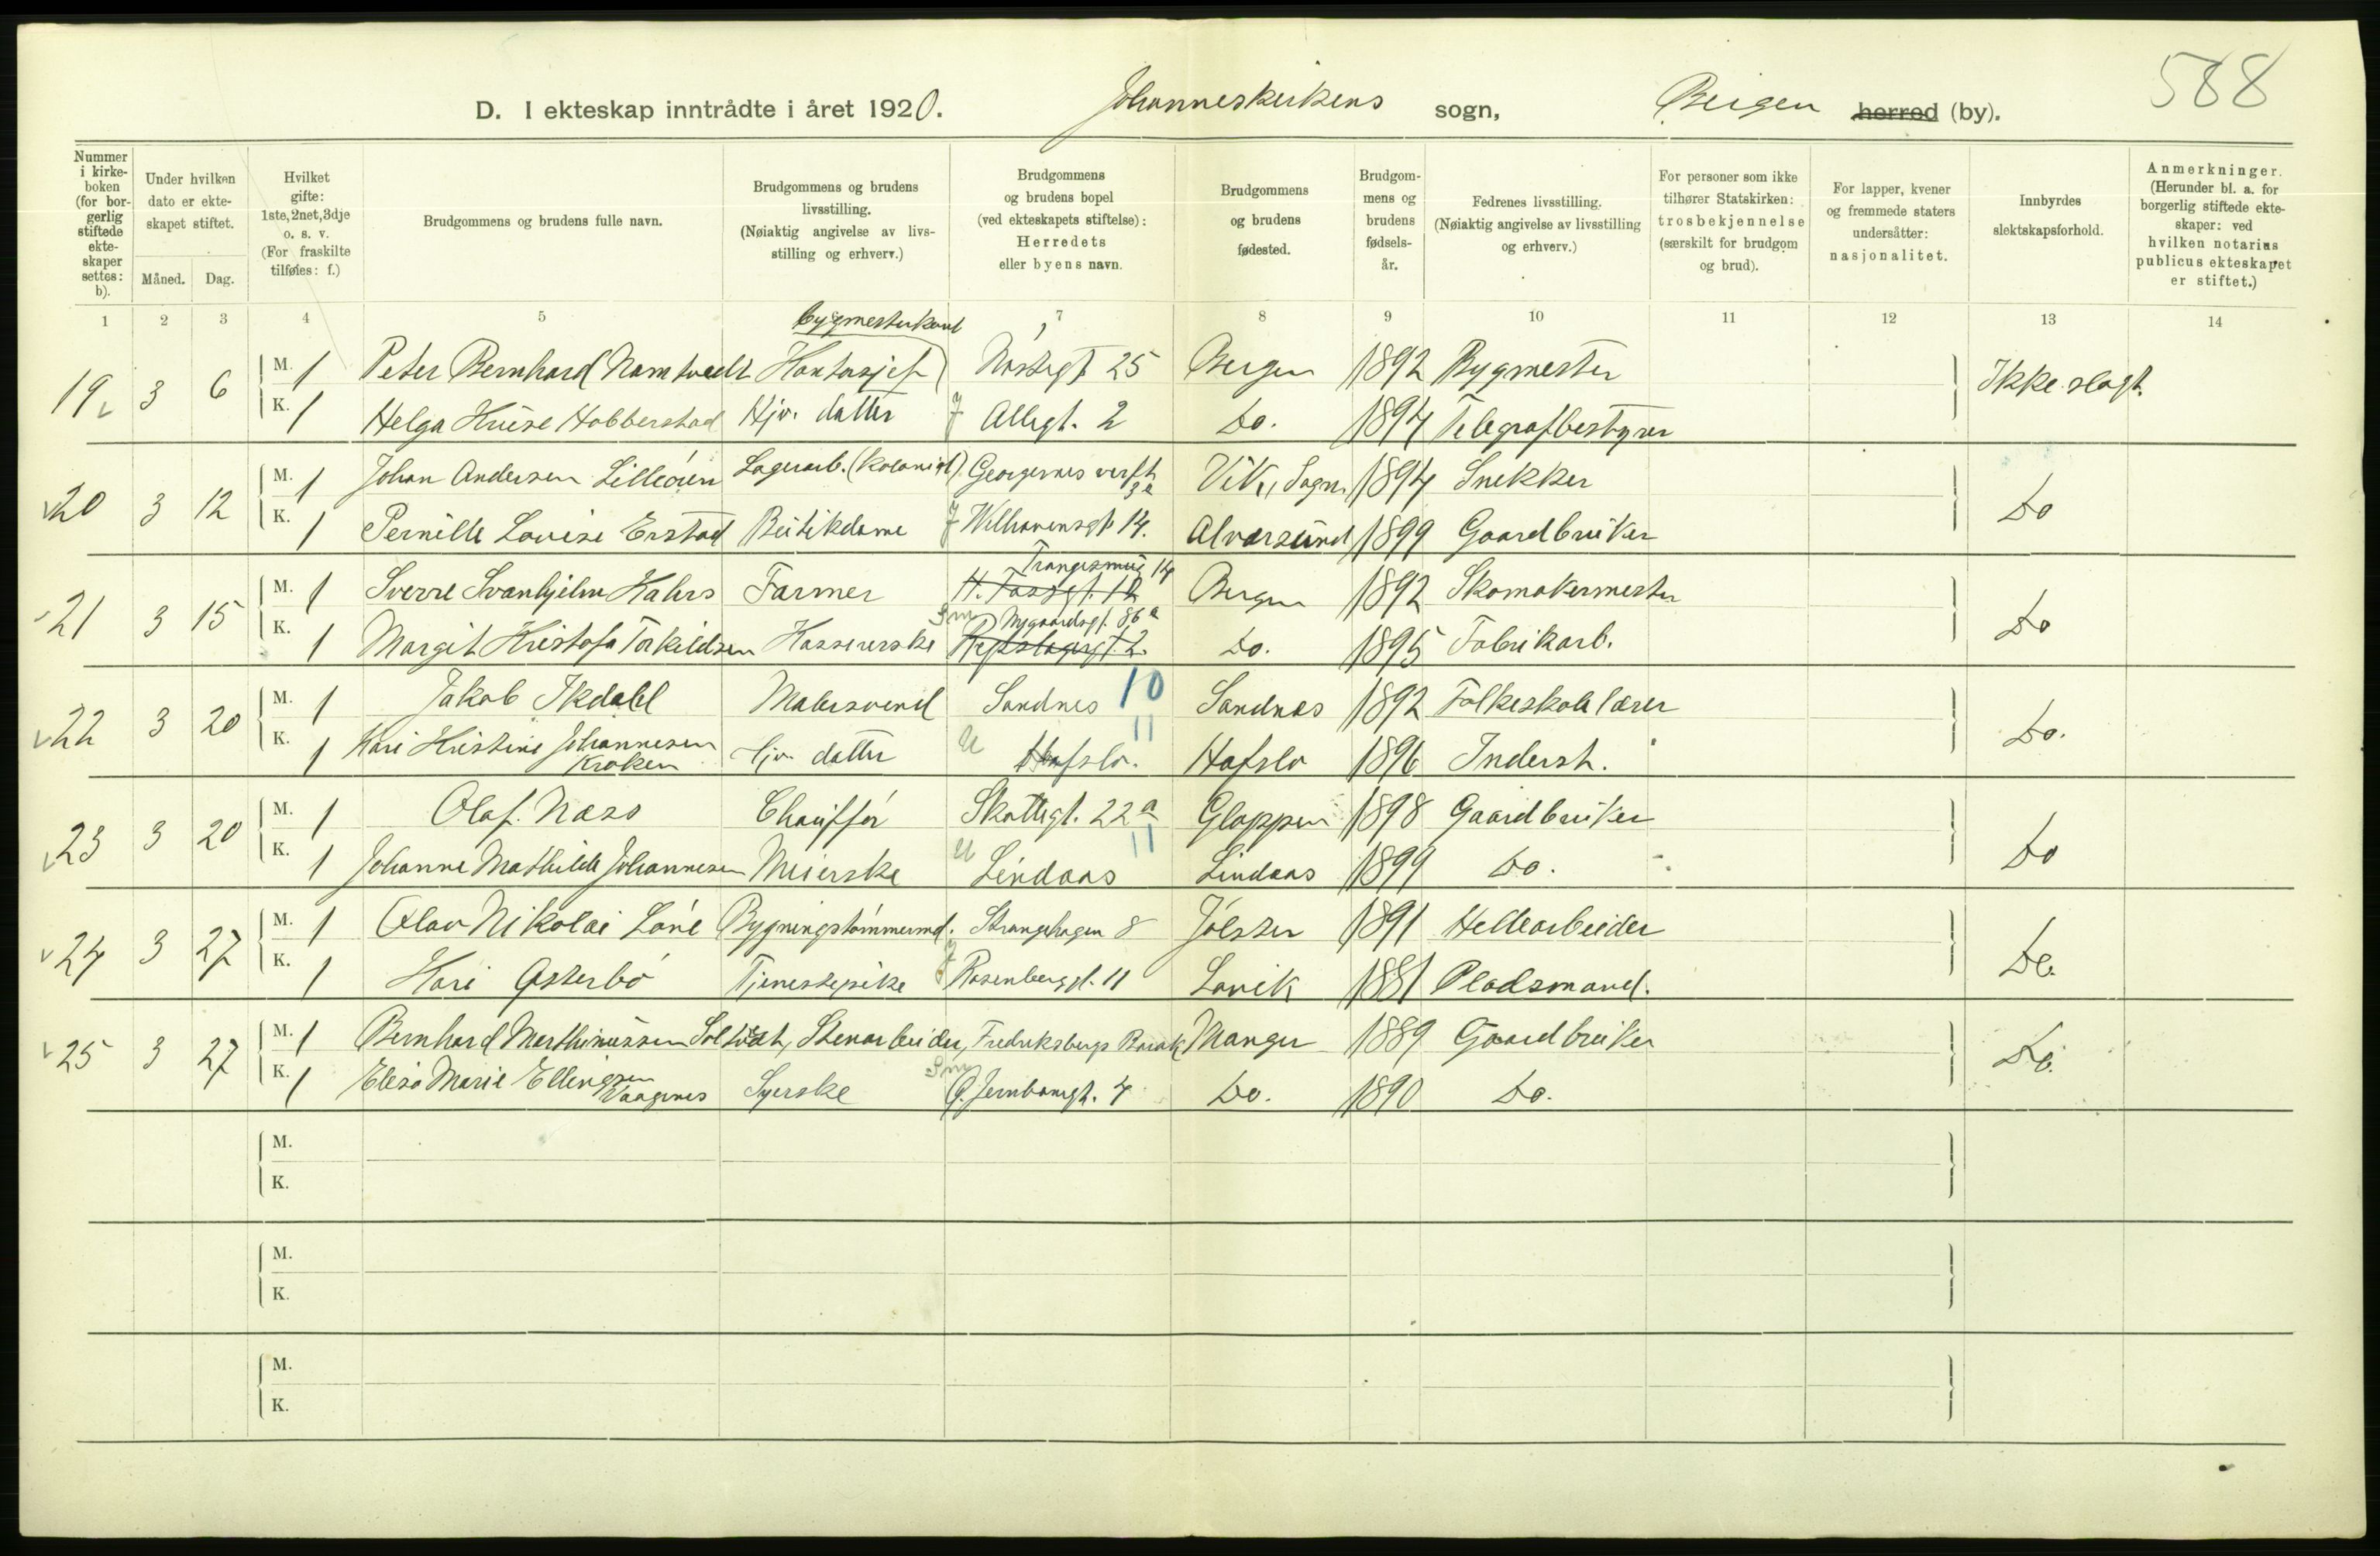 588
D. I ekteskap inntrådte i året 1920. Johanneskirkens sogn, Bergen herred (by).
Nummer i kirkeboken (for borgerlig stiftede ekteskaper settes: b).
Under hvilken dato er ekteskapet stiftet. Måned. Dag.
Hvilket gifte: 1ste, 2net, 3dje o. s. v. (For fraskilte tilføies: f.)
Brudgommens og brudens fulle navn.
Brudgommens og brudens livsstilling. (Nøiaktig angivelse av livsstilling og erhverv.)
Brudgommens og brudens bopel (ved ekteskapets stiftelse): Herredets eller byens navn.
Brudgommens og brudens fødested.
Brudgommens og brudens fødselsår.
Fedrenes livsstilling. (Nøiaktig angivelse av livsstilling og erhverv.)
For personer som ikke tilhører Statskirken: trosbekjennelse (særskilt for brudgom og brud).
For lapper, kvener og fremmede staters undersåtter: nasjonalitet.
Innbyrdes slektskapsforhold.
Anmerkninger. (Herunder bl. a. for borgerlig stiftede ekteskaper: ved hvilken notarius publicus ekteskapet er stiftet.)
1 2 3 4 5 6 7 8 9 10 11 12 13 14
19 3 6 M. 1 Peter Bernhard Namtvedt Kontorsjef Nøstegt. 25 Bergen 1892 Bygmester Ikke slegt.
K. 1 Helga Kruse Hobberstad Hjv. datter Allegt. 2 Do. 1894 Telegrafbestyrer
20 3 12 M. 1 Johan Andersen Lilleøren Lagerarb. (kolonial) Georgernes verft 3a Vik, Sogn 1894 Snekker Do
K. 1 Pernille Lovise Erstad Butikdame Welhavensgt. 14. Alversund 1899 Gaardbruker
21 3 15 M. 1 Sverre Svanhjelm Hahrs Farmer H. Fossgt. 12 Trangesmug 14 Bergen 1892 Skomakermester Do
K. 1 Margit Kristofa Torkildsen Kassererske Nygaardsgt. 86a Do. 1895 Fabrikarb.
22 3 20 M. 1 Jakob Ikdahl Malersvend Sandnes 10 Sandnes 1892 Folkeskolelærer Do.
K. 1 Kari Kristine Johannesen Kroken Hjv. datter U Hafslo. 11 Hafslo 1896 Inderst.
23 3 20 M. 1 Olaf Næss Chauffør Skottegt. 22a Gloppen 1898 Gaardbruker Do
K. 1 Johanne Mathilde Johannesen Meierske U Lindaas 11 Lindaas 1899 Do.
24 3 27 M. 1 Olav Nikolai Løne Bygningstømmermd. Strangehagen 8 Jølster 1891 Hellearbeider Do.
K. 1 Kari Østerbø Tjenestepike Rosenberggt. 11 Lavik 1881 Pladsmand.
25 3 27 M. 1 Bernhard Marthinussen Soltvedt, Stenarbeider, Fredriksbergs Barak Manger 1889 Gaardbruker Do.
K. 1 Elise Marie Ellingsen Vaagenes Syerske Ø. Jernbanegt. 4 Do. 1890 Do.
M.
K.
M.
K.
M.
K.